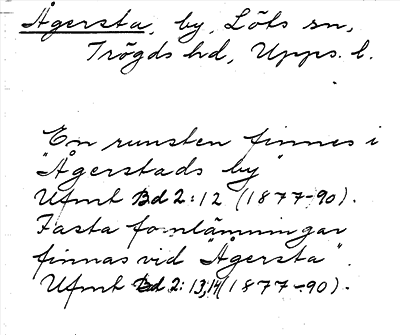 Ågersta, by, Löts sn,
Trögds hd, Upps. l.
En runsten finnes i
"Ågerstads by"
Ufmt Bd 2:12 (1877-90).
Fasta fornlämningar
finnas vid "Ågersta".
Ufmt Bd 2: 13,14 (1877-90).